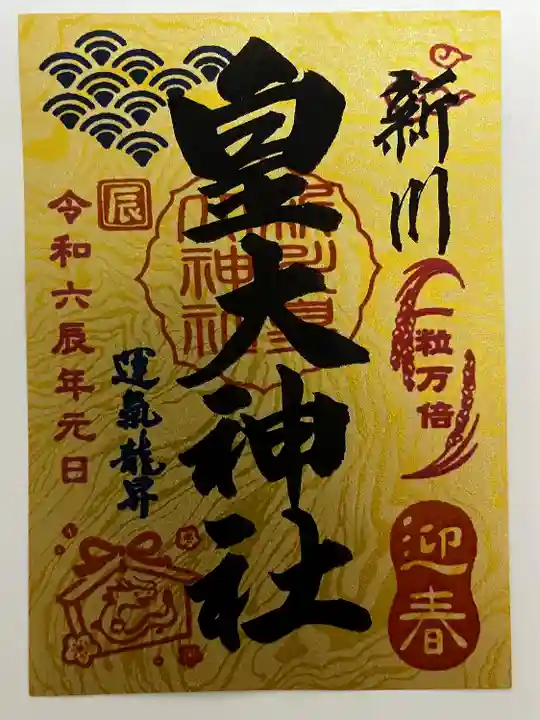 新川
一粒万倍
迎春
皇大神社
運氣龍昇
辰
令和六辰年元日